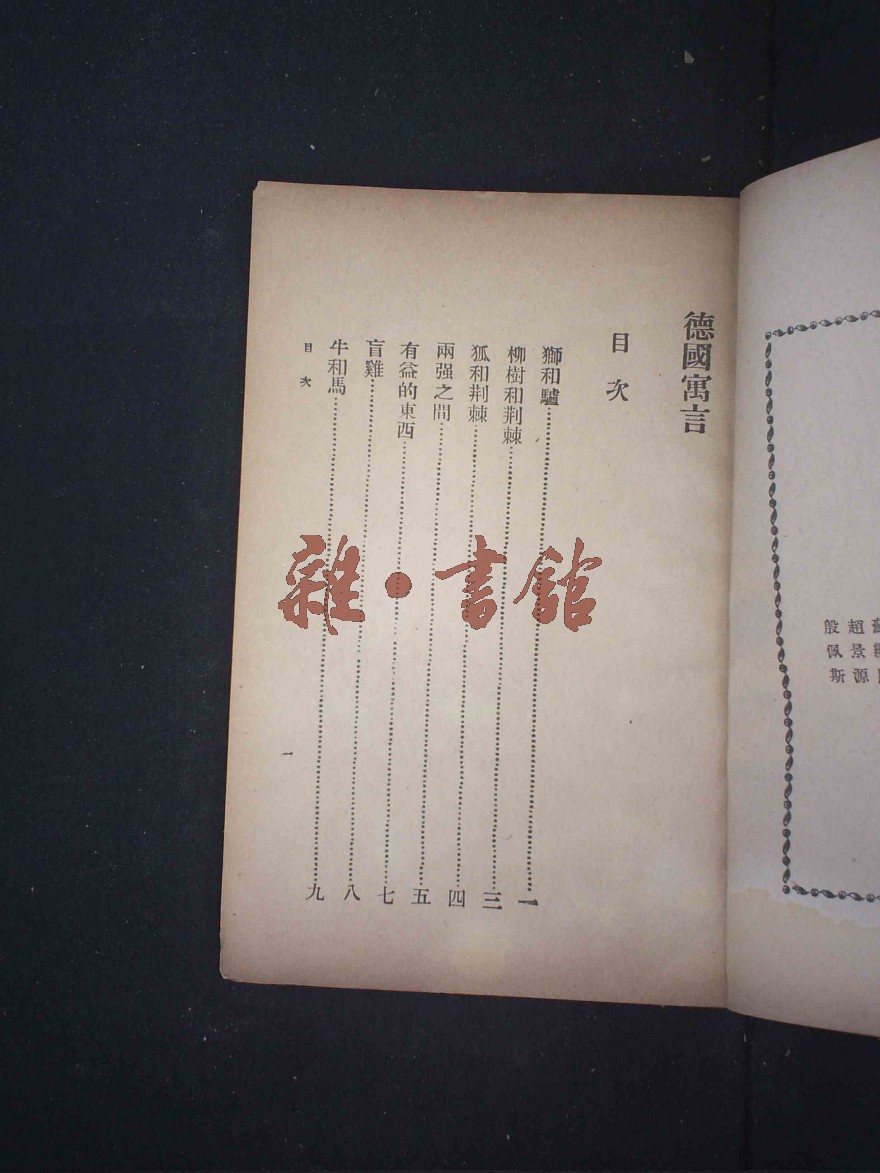 德國寓言
目次
獅和驢……一
柳樹和荆棘……三
狐和荆棘……四
兩强之間……五
有益的東西……七
盲雞……八
牛和馬……九
目次
一
雜·書館
趙景源
殷佩斯